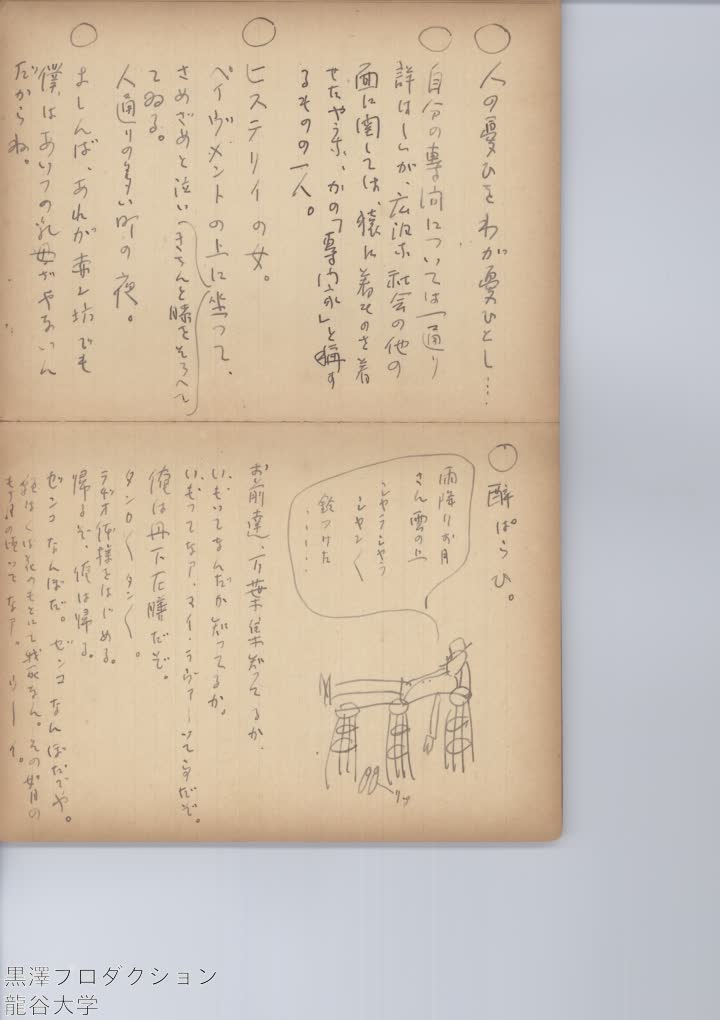 人の憂ひをわが憂ひとし……
自分の専向については一通り
詳はしいが、広汎な社会の他の
面に関しては、猿に着ものを着
せたやうな、かの「専向家」と称す
るものの一人。
ヒステリイの女。
ペイヴメントの上に坐って、
さめざめと泣い
きちんと膝をそろへて
てゐる。
人通りの多い町の夜。
よしんば、あれが赤ん坊でも
僕はあいつの乳母ぢやないん
だからね。
酔ぱらひ。
雨降りお月
さん雲の上
シヤラシヤラ
シヤン〱
鈴つけた
・・・・・
お前達、万葉集知ってるか
いもってなんだか知ってるか。
いもってなァ、マイ・ラヴァーってえんだぞ。
俺は丹下左膳だぞ。
タンカ〱タン〱。
ラヂオ体操をはじめる。
帰るぞ、俺は帰る。
ゼンコなんぼだ。ゼンコなんぼだでや。
願はくは花のもとにて我死なん。その如月の
もち月の頃ってなァ。
黒澤プロダクション
龍谷大学